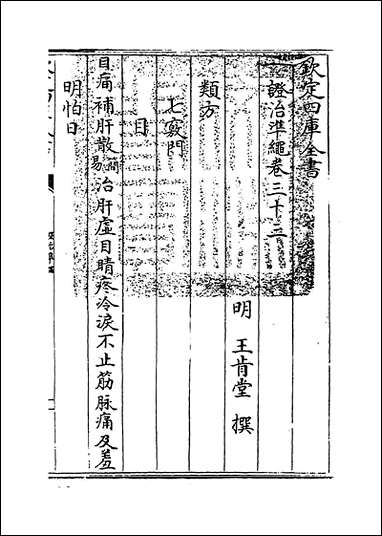 欽定四庫全書
證治準繩卷三十三
明 王肯堂 撰
類方
七竅門
目
目痛補肝散簡易治肝虛目睛疼冷淚不止筋脉痛及羞
明怕日